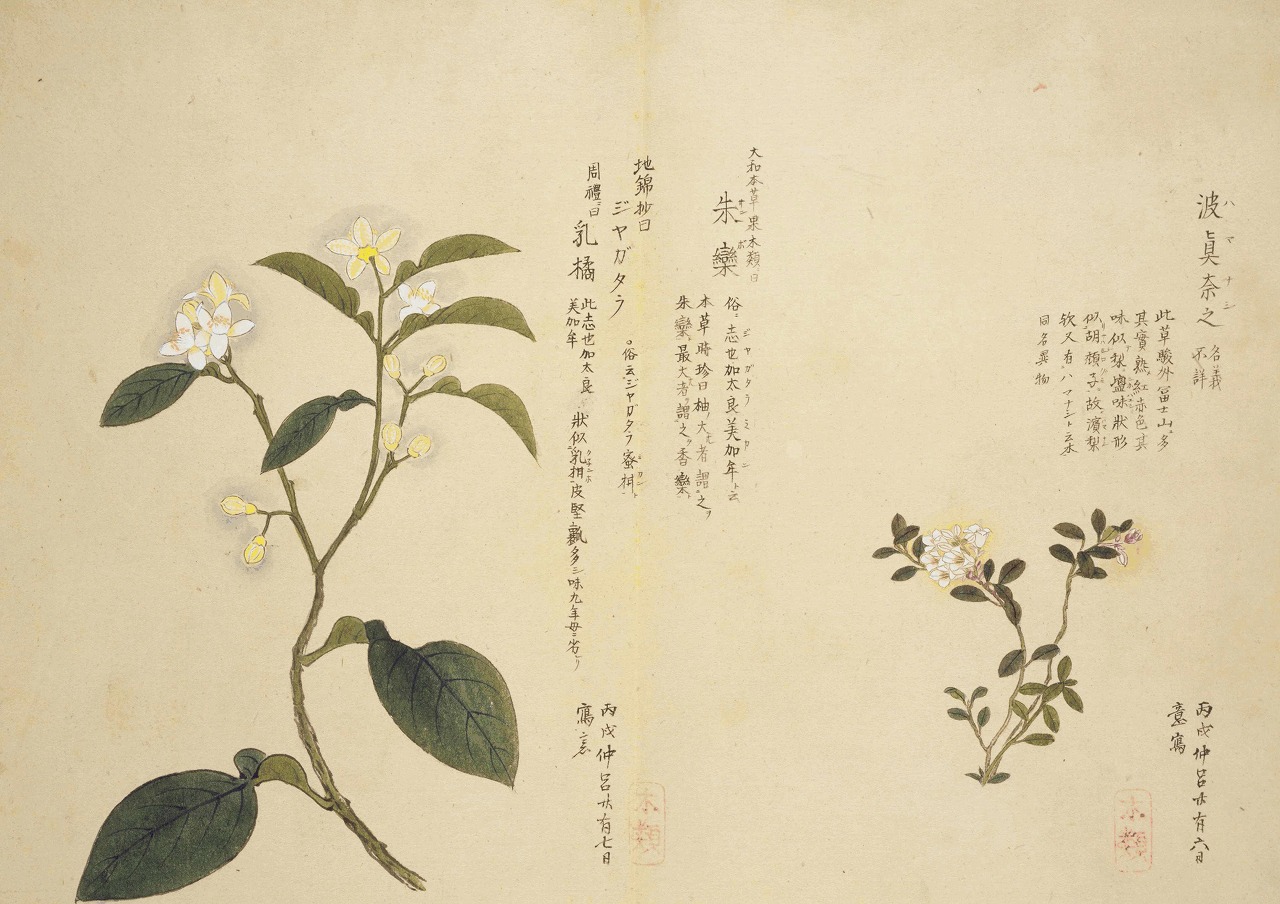 波眞奈之
ハマナシ
名義
不詳
此草駿州冨士山ニ多
其實熟紅赤色其
味似梨塩味狀形
似胡頽子故濱梨
欤又有ハマナシト云木
同名異物
丙戌仲呂廿有六日
意寫
木類
大和本草果木類ニ曰
朱欒
俗ニ志也加太良美加牟ト云
ジヤガタラミカン
本草時珍曰柚ノ大ナル者謂之ヲ
朱欒最大者謂之香欒ト
地錦抄曰
ジヤガタラ
○俗云ジヤガタラ蜜柑
周禮ニ曰
乳橘
此志也加太良
美加牟
狀似乳柑皮堅瓤多シ味九年母ニ劣リ
丙戌仲呂廿有七日
寫意
木類